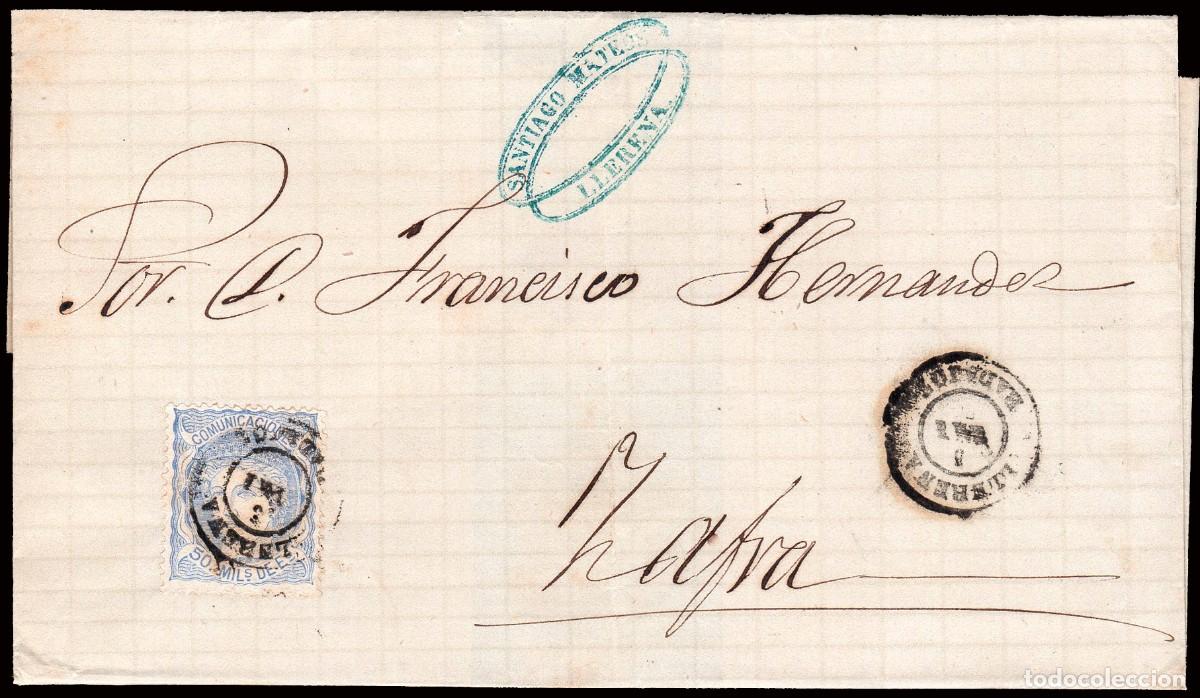 SANTIAGO
LLERENA.
Por. D. Francisco Hernandez
BADAJOZ
LLERENA
COMUNICACIONES
50 MILS DE E.
LLERENA
Zafra
todocoleccion